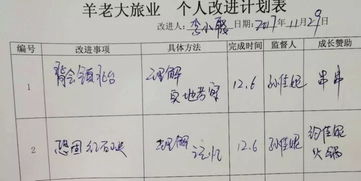 羊老大旅业 个人改进计划表
改进人: 李小霞 日期: 2017年11月29日
编号 改进事项 具体方法 完成时间 监督人 成长赞助
1 背会镇北台 理解 实地考察 12.6 孙佳妮 串串
2 巩固红石峡 理解 记忆 12.6 孙佳妮 约佳妮 火锅